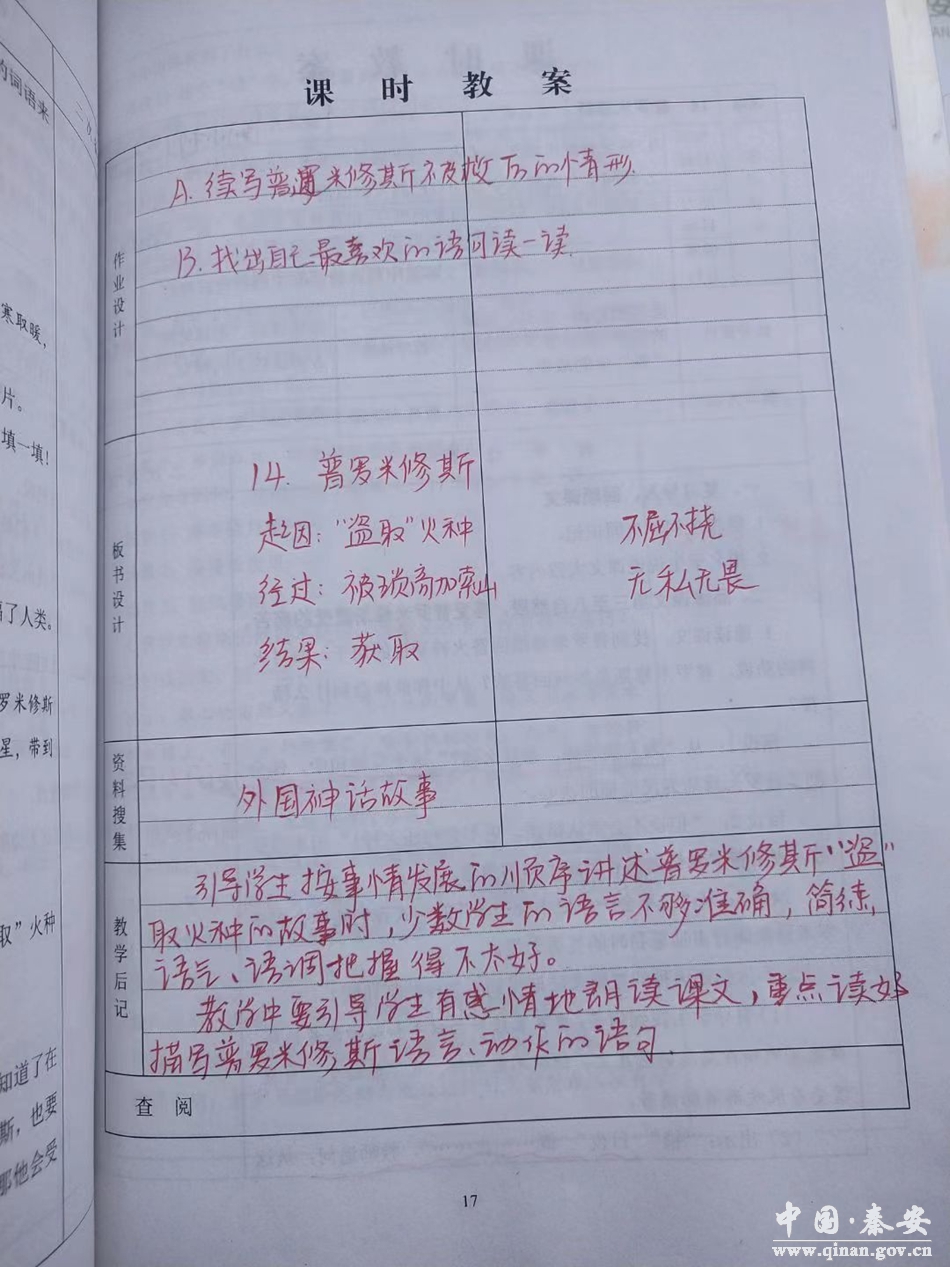 课时教案
作业设计
A. 续写普罗米修斯被救后的情形.
B. 找出自己最喜欢的语句读一读.
板书设计
14. 普罗米修斯
起因：“盗取”火种
不屈不挠
经过：被锁高加索山
无私无畏
结果：获取
资料搜集
外国神话故事
教学后记
引导学生按事情发展的顺序讲述普罗米修斯“盗”
取火种的故事时，少数学生的语言不够准确，简练，
语言、语调把握得不太好。
教学中要引导学生有感情地朗读课文，重点读好
描写普罗米修斯语言、动作的语句
查阅
17
的词语来
寒取暖，
片。
填一填！
了人类。
罗米修斯
星，带到
取”火种
知道了在
斯，也要
那他会受
中国·秦安
www.qinan.gov.cn